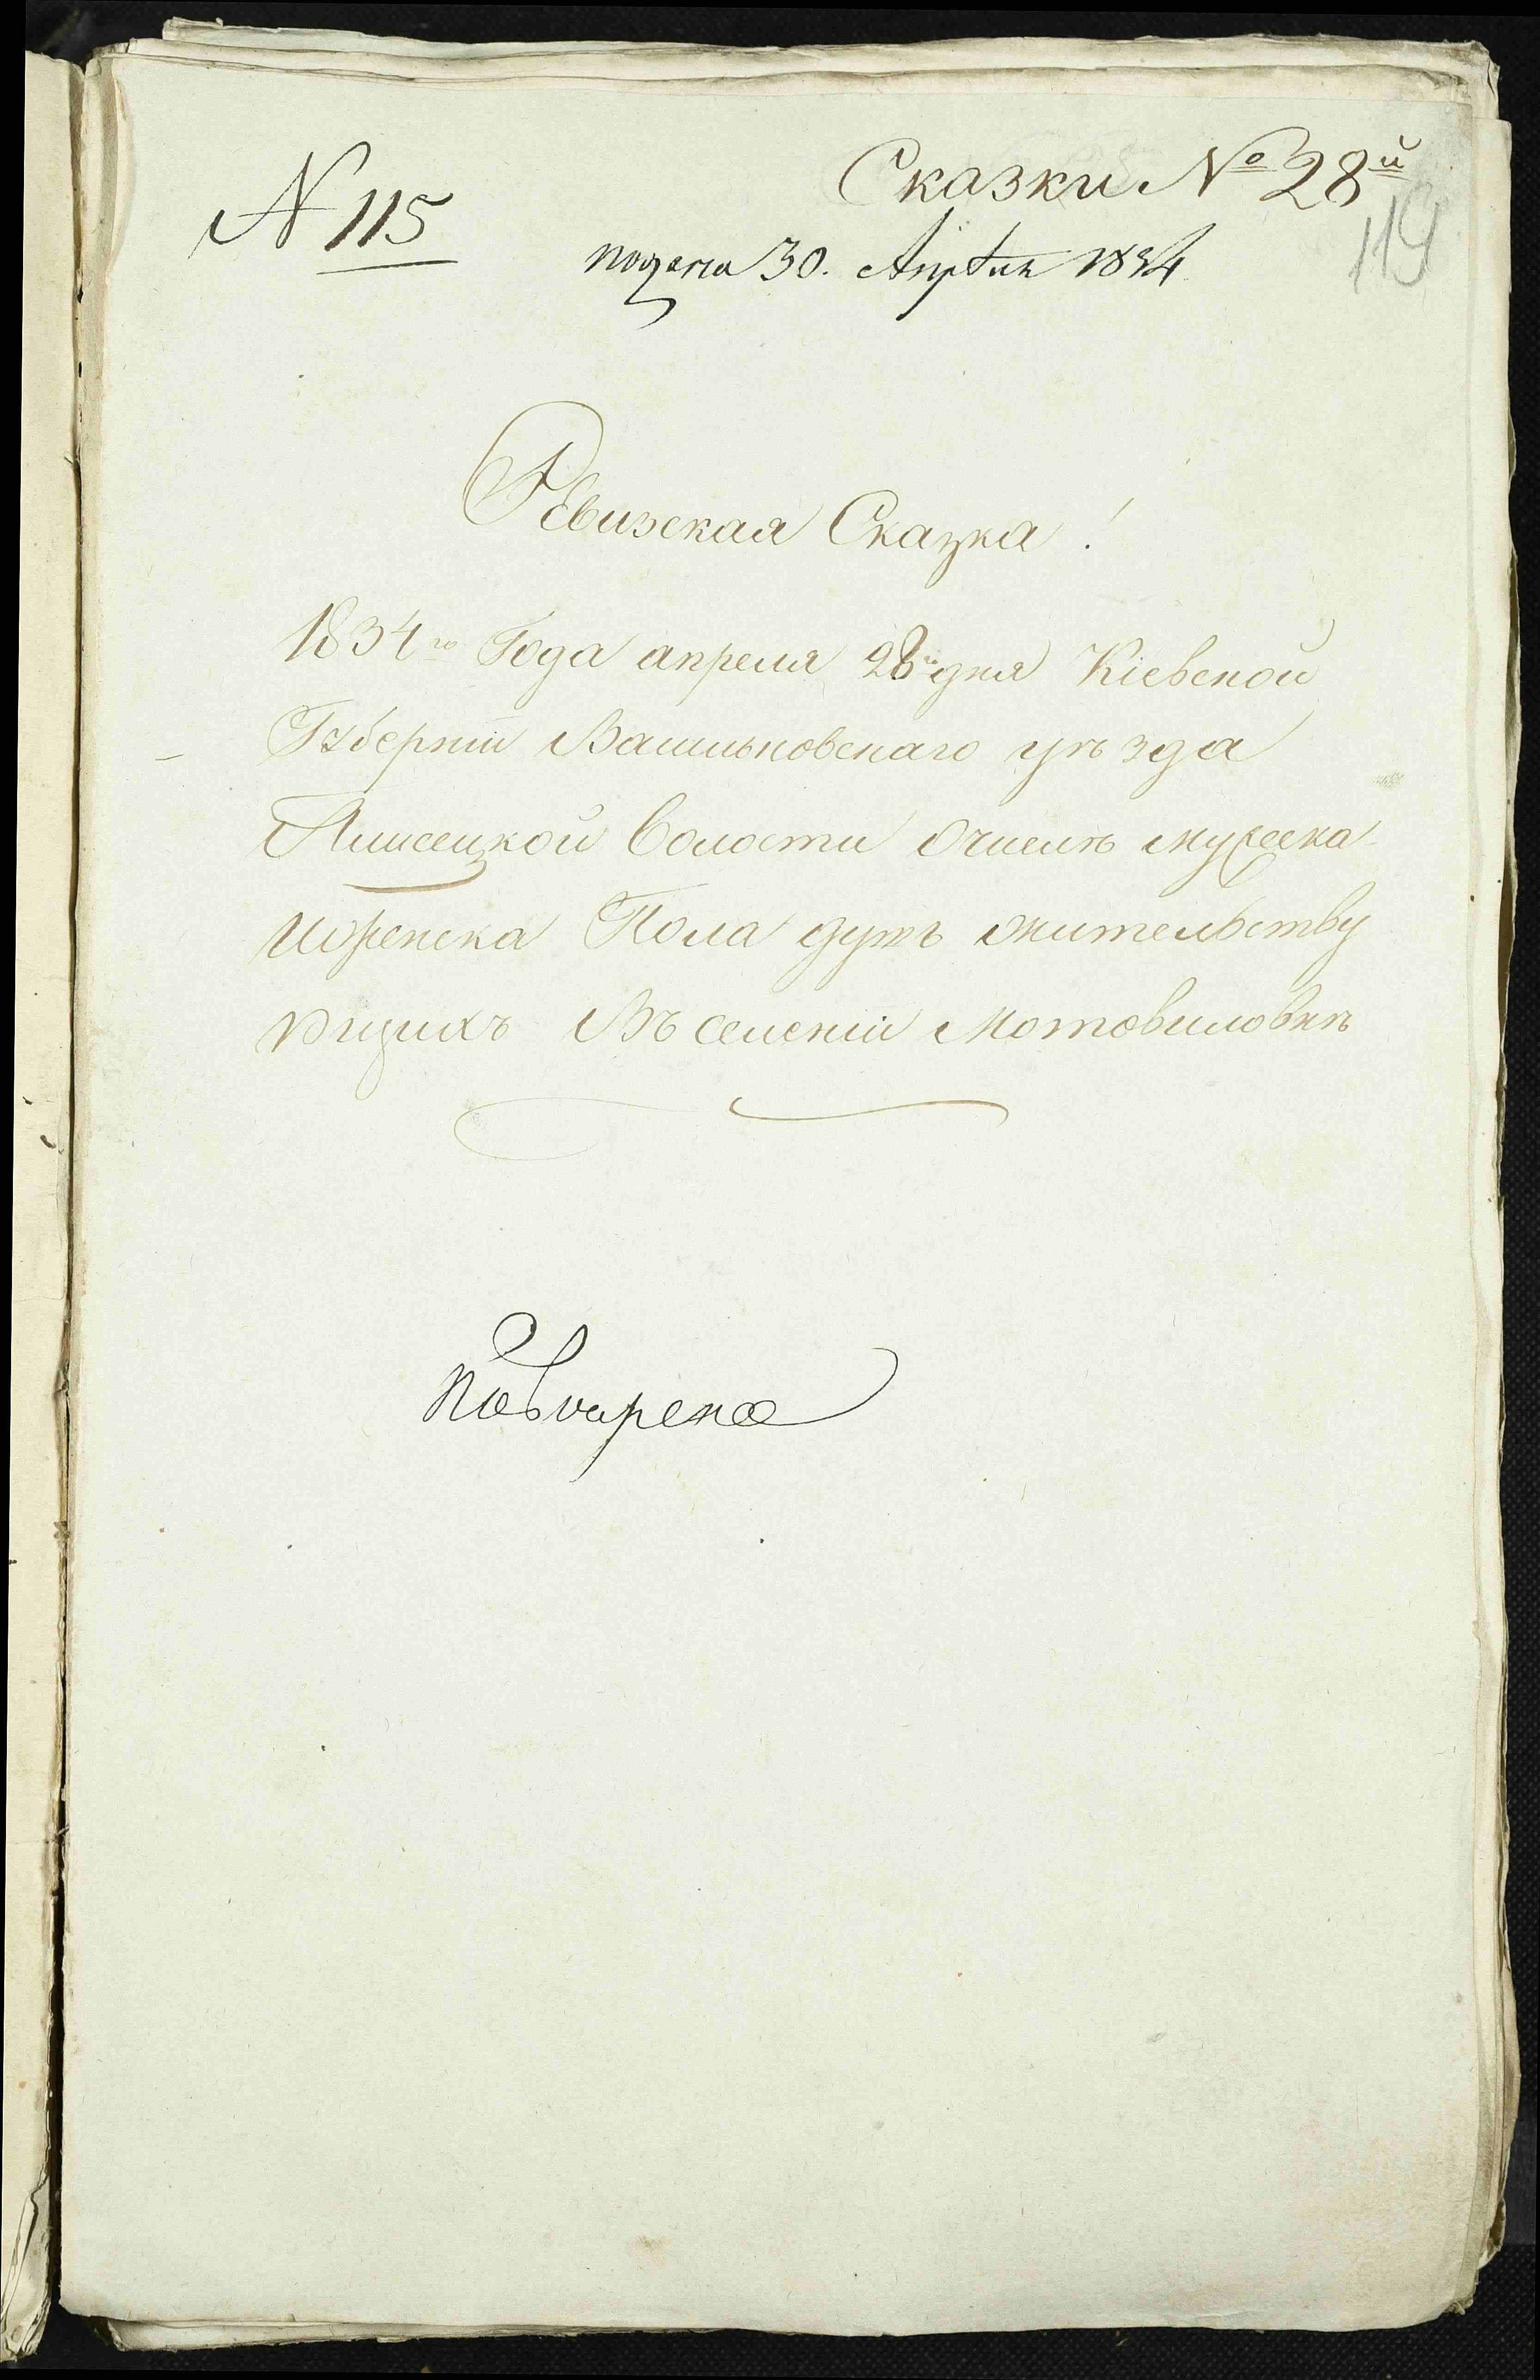 № 115
Сказки № 28й
119
подана 30. Апрѣля 1834
Ревизская Сказка!
1834го Года апреля 28 дня Кіевской
Губерніи Васильковскаго уѣзда
волости Очислѣ мужеска
Иоженска Пола душъ жительству
ющихъ Въ селеніи Мотовиловкѣ